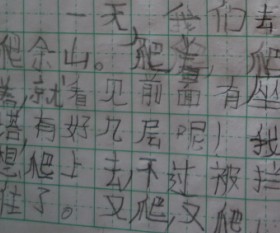 一天,我们去
爬佘山。爬着,
着,就看见前面有座
塔,有好几层呢!我
想爬上去,不过被拦
住了。又爬,又爬,